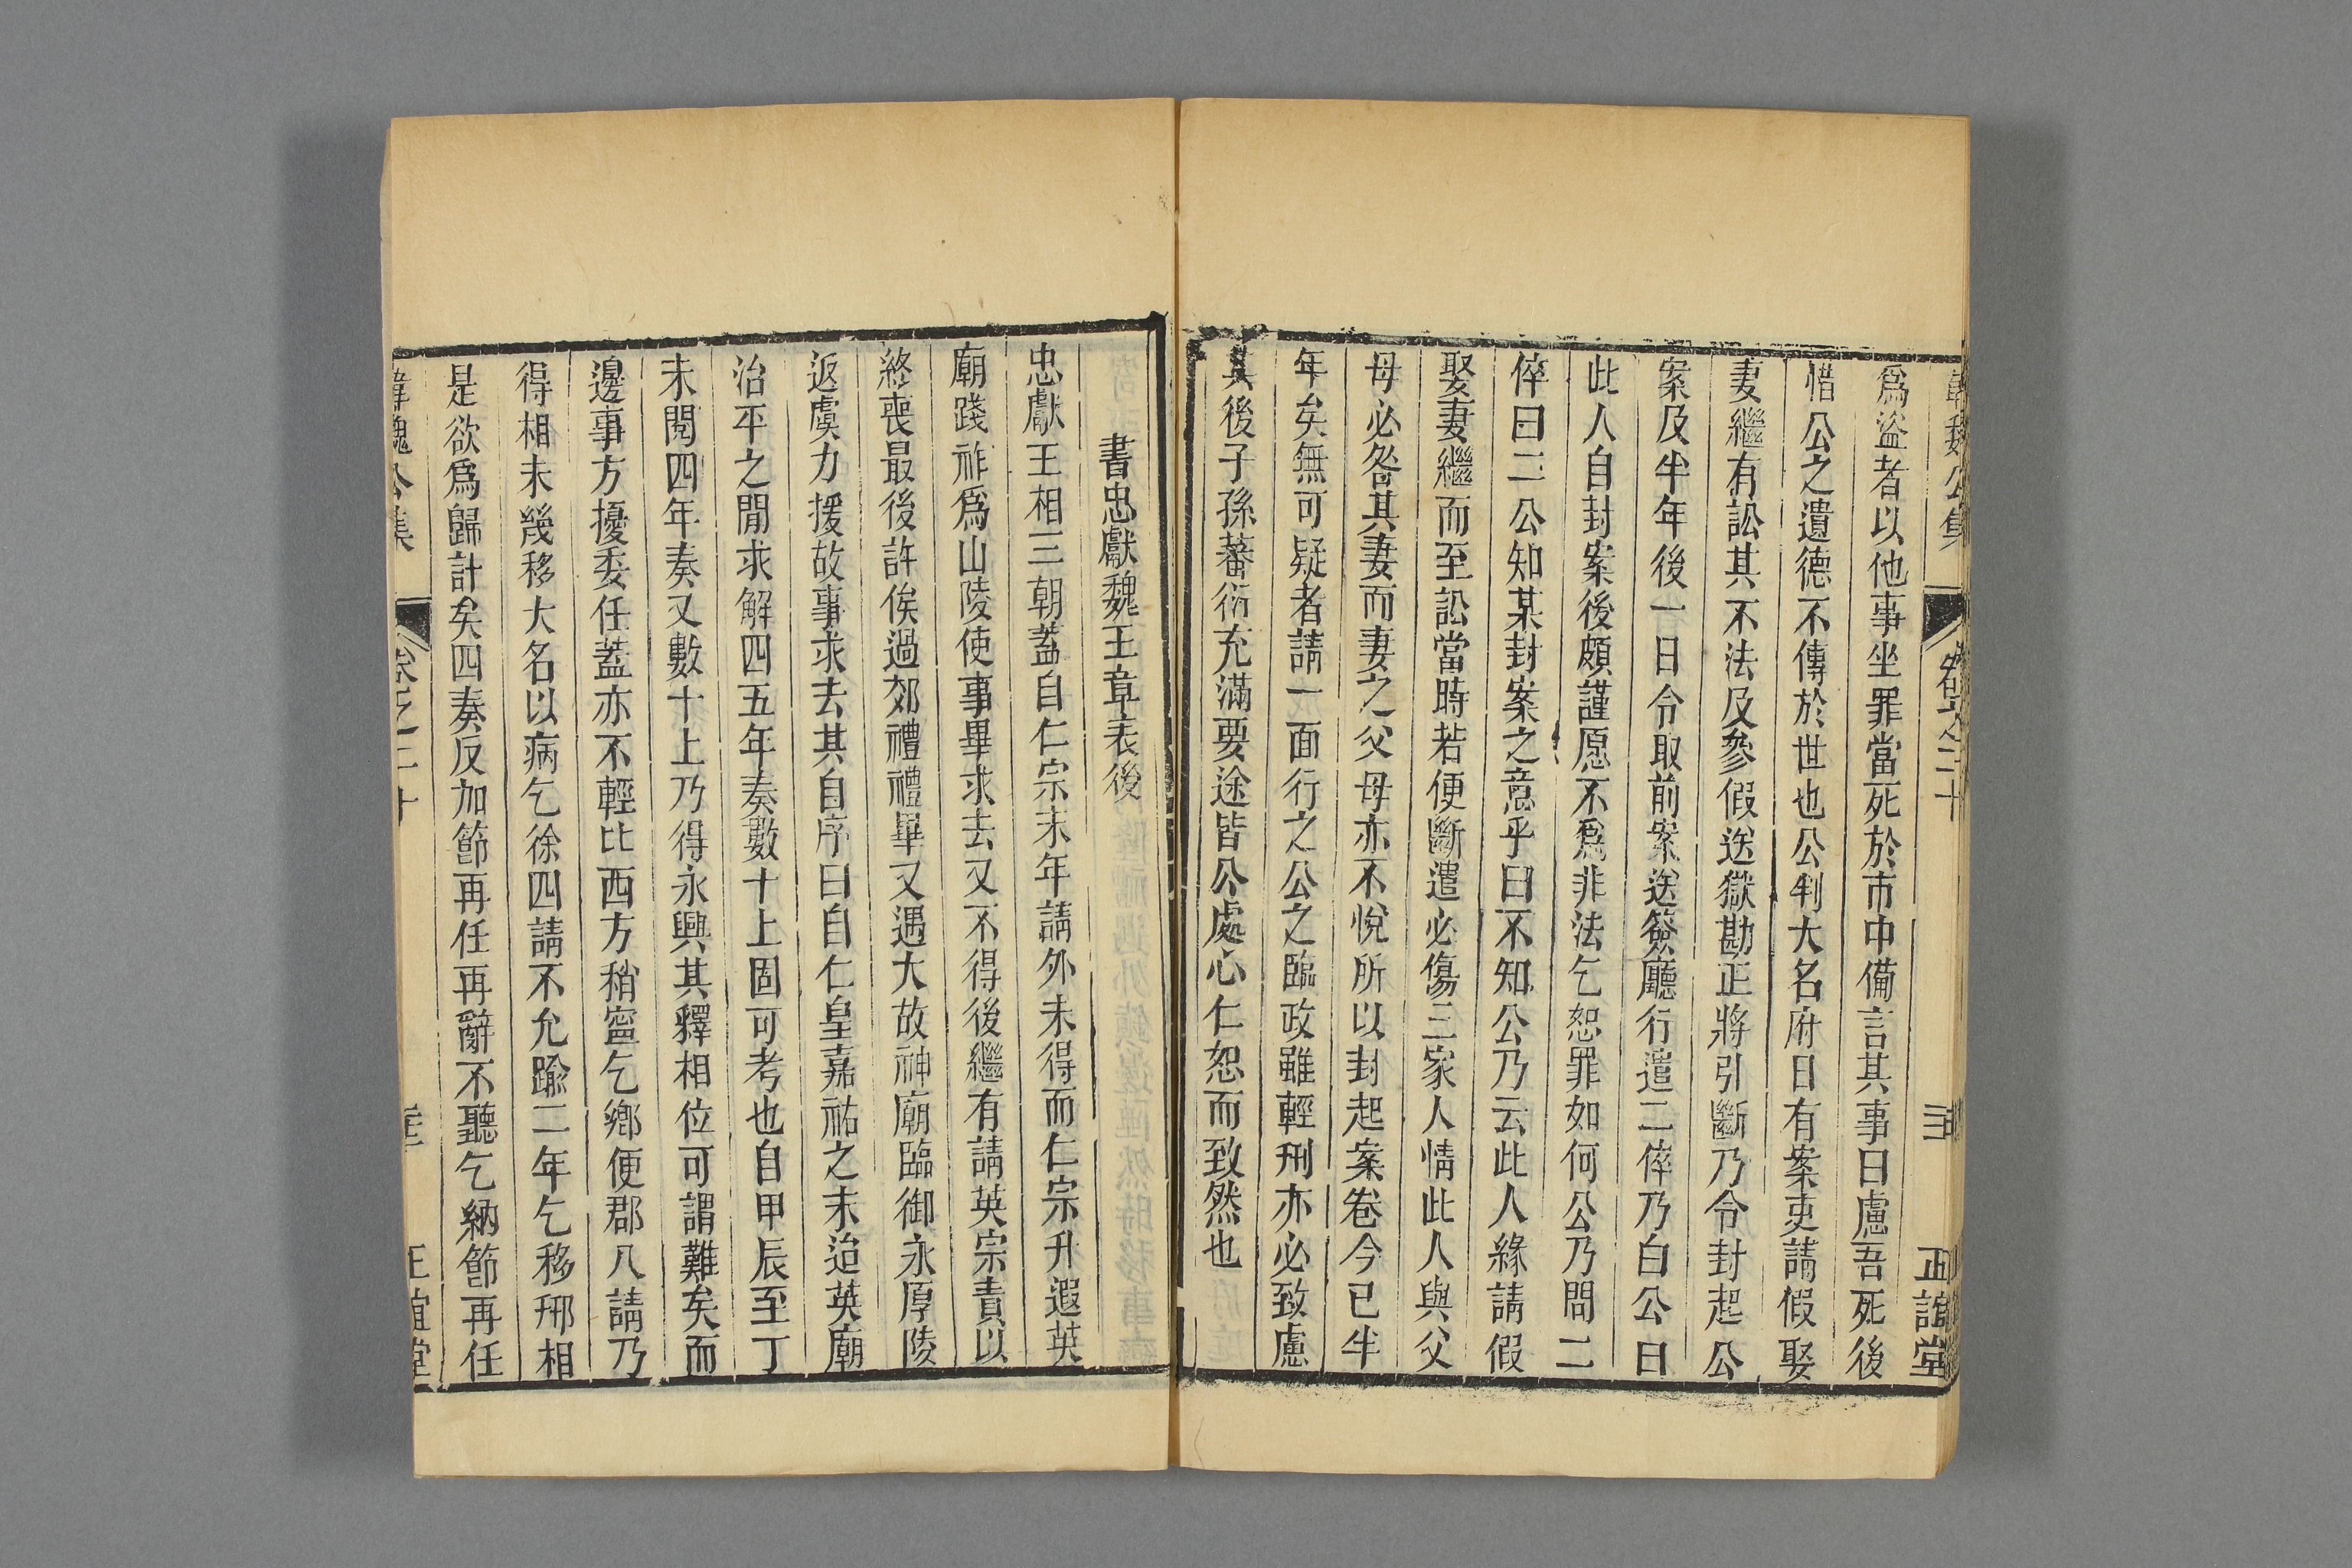 韓魏公集 卷之二十 正誼堂
爲盜者以他事坐罪當死於市中備言其事曰慮吾死後
惜公之遺德不傳於世也公判大名府日有案吏請假娶
妻繼有訟其不法及參假送獄勘正將引斷乃令封起公
案及半年後一日令取前案送簽廳行遣二倅乃白公曰
此人自封案後頗謹愿不爲非法乞恕罪如何公乃問二
倅曰二公知某封案之意乎曰不知公乃云此人緣請假
娶妻繼而至訟當時若便斷遣必傷三家人情此人與父
母必咎其妻而妻之父母亦不悅所以封起案卷今已半
年矣無可疑者請一面行之公之臨政雖輕刑亦必致慮
其後子孫蕃衍充滿要途皆公處心仁恕而致然也
書忠獻魏王章表後
忠獻王相三朝蓋自仁宗末年請外未得而仁宗升遐英
廟踐祚爲山陵使事畢求去又不得後繼有請英宗責以
終喪最後許俟過郊禮禮畢又遇大故神廟臨御永厚陵
返虞力援故事求去其自序曰自仁皇嘉祐之末迨英廟
治平之閒求解四五年奏數十上固可考也自甲辰至丁
未閱四年奏又數十上乃得永興其釋相位可謂難矣而
邊事方擾委任蓋亦不輕比西方稍寍乞鄉便郡八請乃
得相未幾移大名以病乞徐四請不允踰二年乞移邢相
是欲爲歸計矣四奏反加節再任再辭不聽乞納節再任
韓魏公集 卷之二十 正誼堂